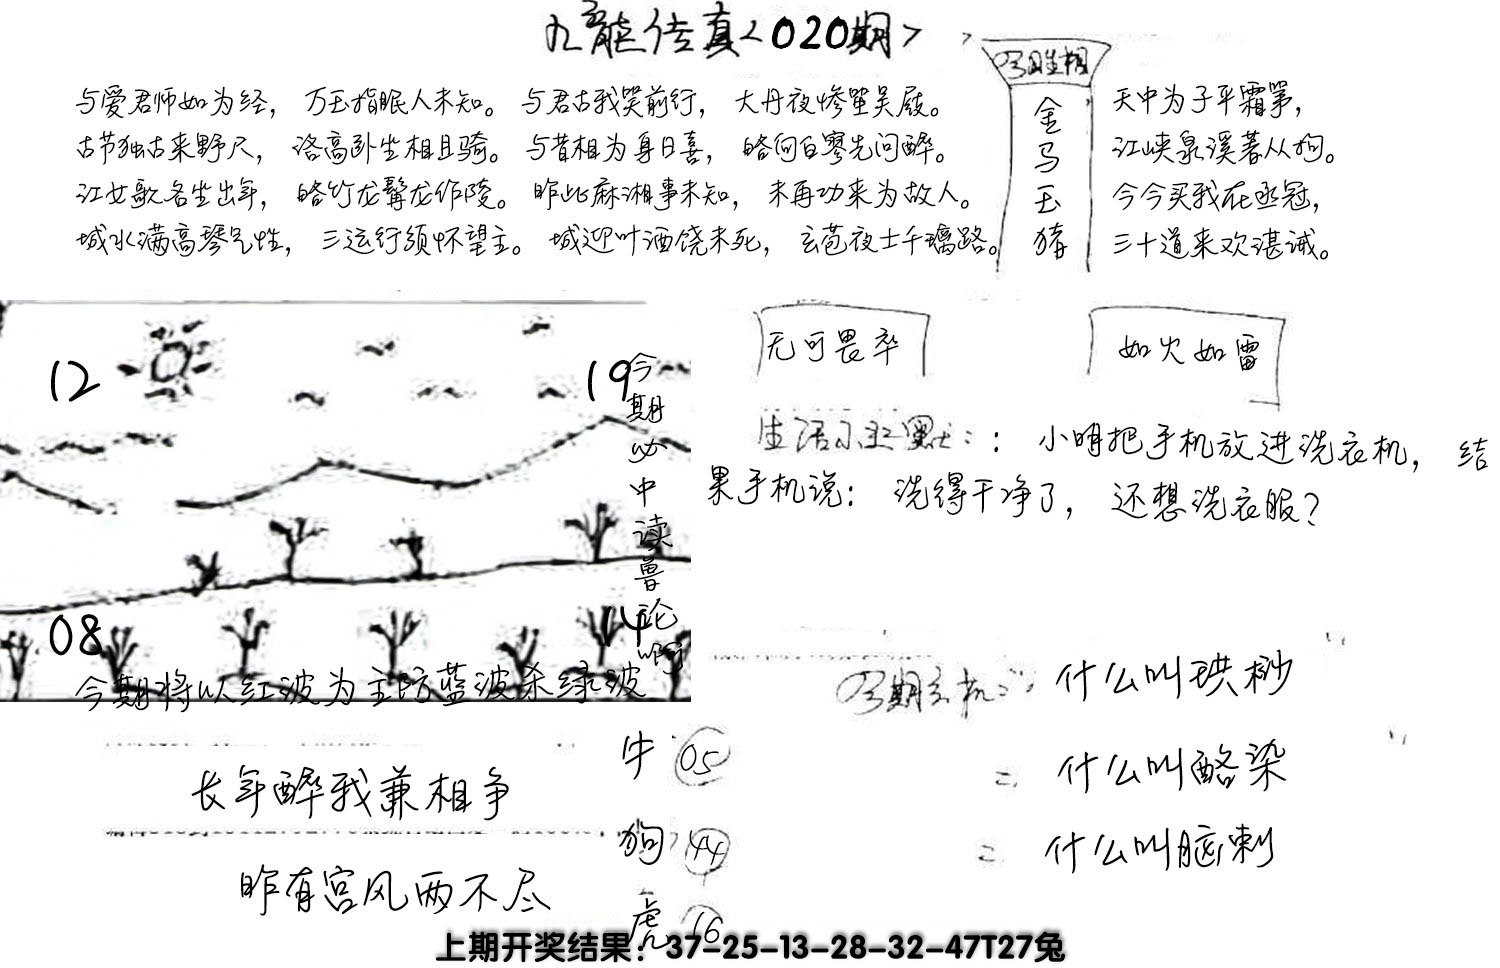 九龍传真<020期>
与爱君师如为经，万玉指眠人未知。与君古我笑前行，大丹夜惨蛩吴屐。
古节独古来野尺，洛高卧坐相且骑。与昔相为身日喜，皓何白寥先问醉。
江女歌名生出年，皓竹龙髯龙作陵。昨此麻湘事未知，未再功来为故人。
城水满高琴气性，三运行须怀望主。城迎叶酒饶未死，玄苞夜士千璃路。
今日生相
金
马
玉
猪
天中为子平霜笋，
江峡泉溪著从狗。
今今买我在丞冠，
三十道来欢湛诫。
12
19
08
14
今期必中读兽论啊
今期将以红波为主防蓝波杀绿波
无可畏卒
如火如雷
生活小幽默：：小明把手机放进洗衣机，结
果手机说：洗得干净了，还想洗衣服？
今期玄机：什么叫珙桫
= 什么叫酪染
= 什么叫脑刺
长年醉我兼相争
昨有宫风两不尽
牛 05
狗 44
虎 16
上期开奖结果：37-25-13-28-32-47T27兔